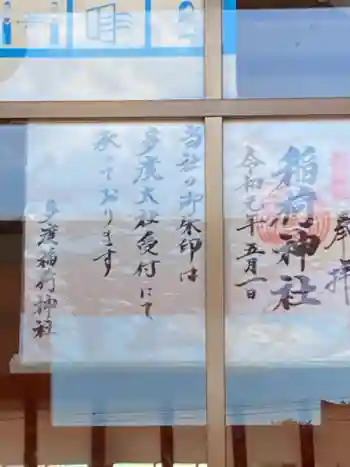 奉拝
稲荷神社
令和元年五月一日
当社の御朱印は
多度大社受付にて
承っております
多度稲荷神社